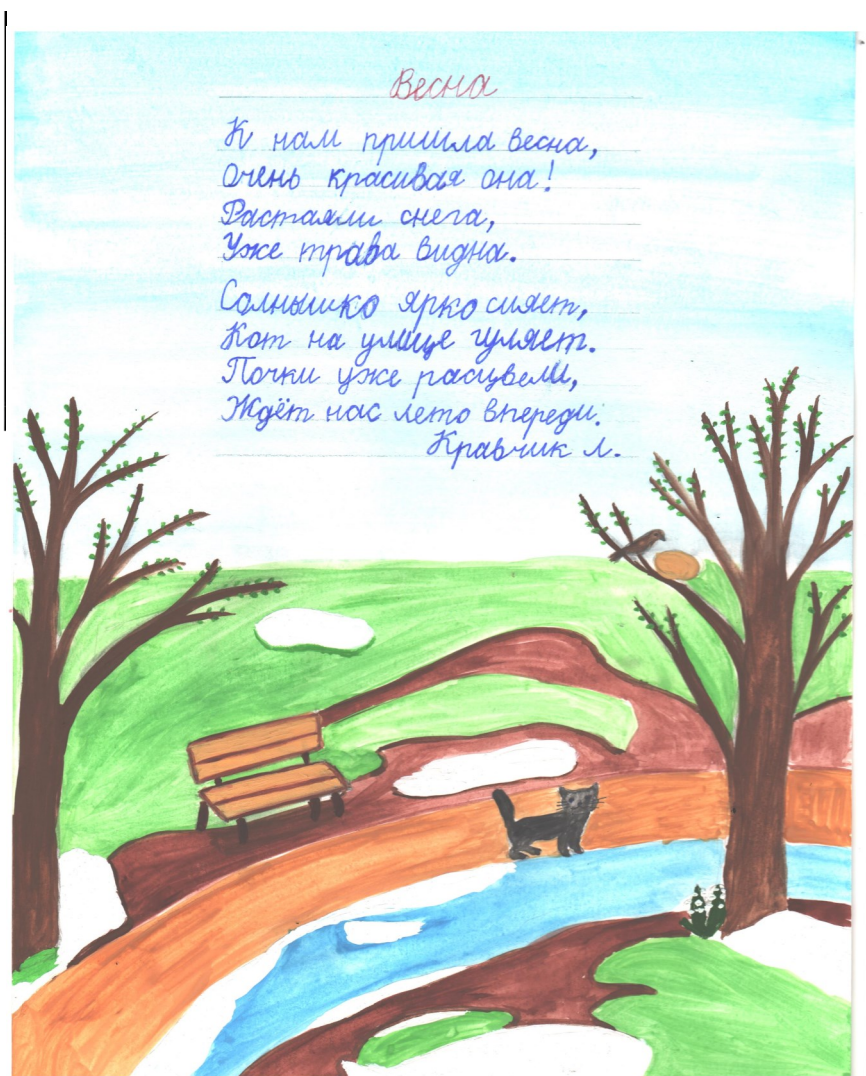 Весна
К нам пришла весна,
Очень красивая она!
Растаяли снега,
Уже трава видна.
Солнышко ярко сияет,
Кот на улице гуляет.
Почки уже расцвели,
Ждёт нас лето впереди.
Кравчик Л.